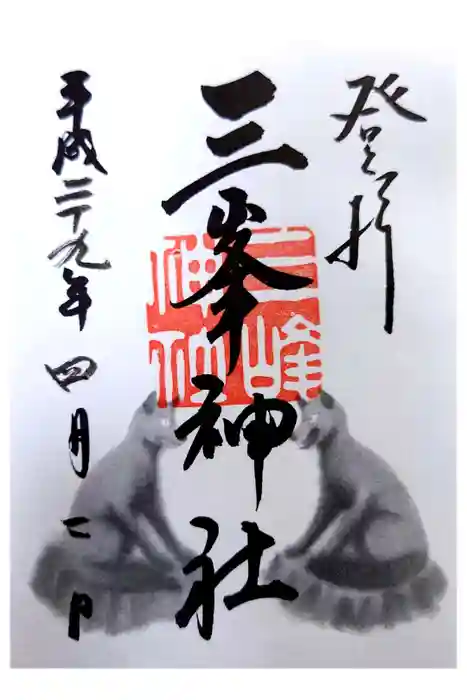 登拝
三峯神社
三峰
神社
平成二十九年四月一日